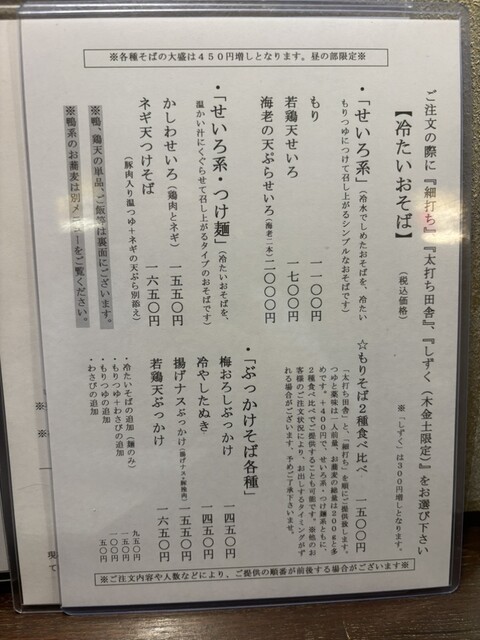 ※各種そばの大盛は４５０円増しとなります。昼の部限定※
ご注文の際に『細打ち』、『太打ち田舎』、『しずく（木金土限定）』をお選び下さい
※「しずく」は３００円増しとなります。
【冷たいおそば】
（税込価格）
・「せいろ系」（冷水でしめたおそばを、冷たい
もりつゆにつけて召し上がるシンプルなおそばです）
もり　１１００円
若鶏天せいろ　１７００円
海老の天ぷらせいろ（海老二本）２０００円
☆もりそば２種食べ比べ　１５００円
「太打ち田舎」と、「細打ち」を順にご提供致します。
つゆと薬味は一人前量、お蕎麦の総量は２００ｇと多
めです。＋４００円で、せいろ系・つけ麺系ともに、
２種食べ比べでご提供することも可能です。※他のお
客様のご注文状況により、お出しするタイミングがず
れる場合がございます。予めご了承下さいませ。
・「せいろ系・つけ麺」（冷たいおそばを、
温かい汁にくぐらせて召し上がるタイプのおそばです）
かしわせいろ（鶏肉とネギ）　１５５０円
ネギ天つけそば　１６５０円
（豚肉入り温つゆ＋ネギの天ぷら別添え）
・「ぶっかけそば各種」
梅おろしぶっかけ　１４５０円
冷やしたぬき　１４５０円
揚げナスぶっかけ（揚げナス・豚挽肉）　１５５０円
若鶏天ぶっかけ　１６５０円
※鴨、鶏天の単品、ご飯等は裏面にございます。
※鴨系のお蕎麦は別メニューをご覧ください。
・冷たいそばの追加（麺のみ）　９５０円
・もりつゆ＋わさびの追加　１５０円
・もりつゆの追加　１００円
・わさびの追加　５０円
※ご注文内容や人数などにより、ご提供の順番が前後する場合がございます※
※
※
現
て